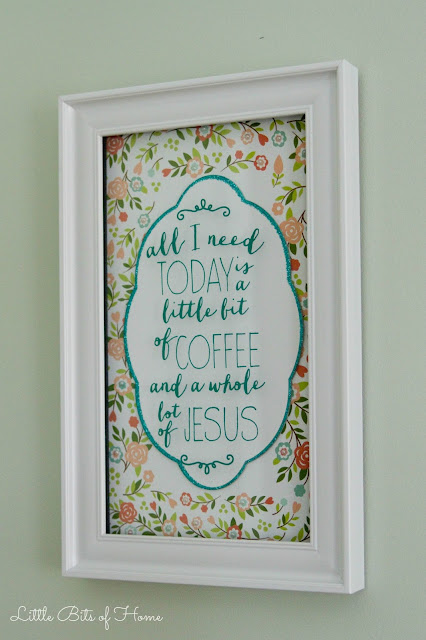 all I need
TODAY is a
little bit
of COFFEE
and a whole
lot of JESUS
Little Bits of Home